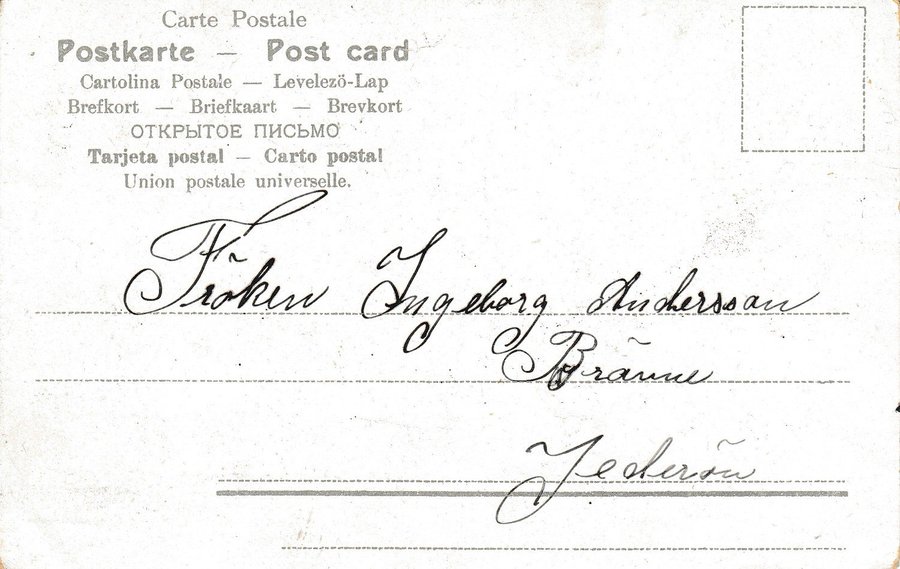 Carte Postale
Postkarte — Post card
Cartolina Postale — Levelezö-Lap
Brefkort — Briefkaart — Brevkort
ОТКРЫТОЕ ПИСЬМО
Tarjeta postal — Carto postal
Union postale universelle.
Fröken Ingeborg Andersson
Bränne
Jederön